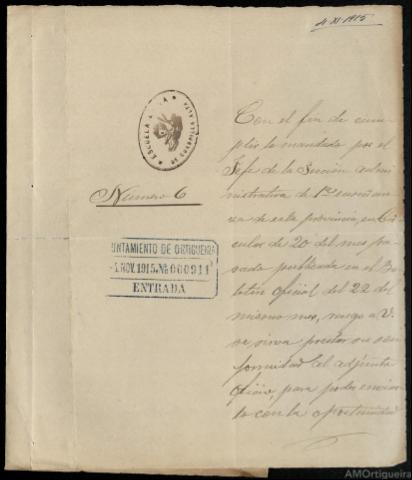 4 XI 1915
ESCUELA
Número 6
UNTAMIENTO DE ORTIGUEIRA
1 NOV. 1915 Nº 000911
ENTRADA
Con el fin de cum-
plir lo mandado por el
Jefe de la Sección admi-
nistrativa de 1ª enseñan-
za de esta provincia, en cir-
cular de 20 del mes pa-
sado publicada en el Bo-
letín Oficial del 22 del
mismo mes, ruego a V.
se sirva prestar su con-
formidad al adjunto
oficio, para poder enviar-
lo con la oportunidad
AMOrtigueira